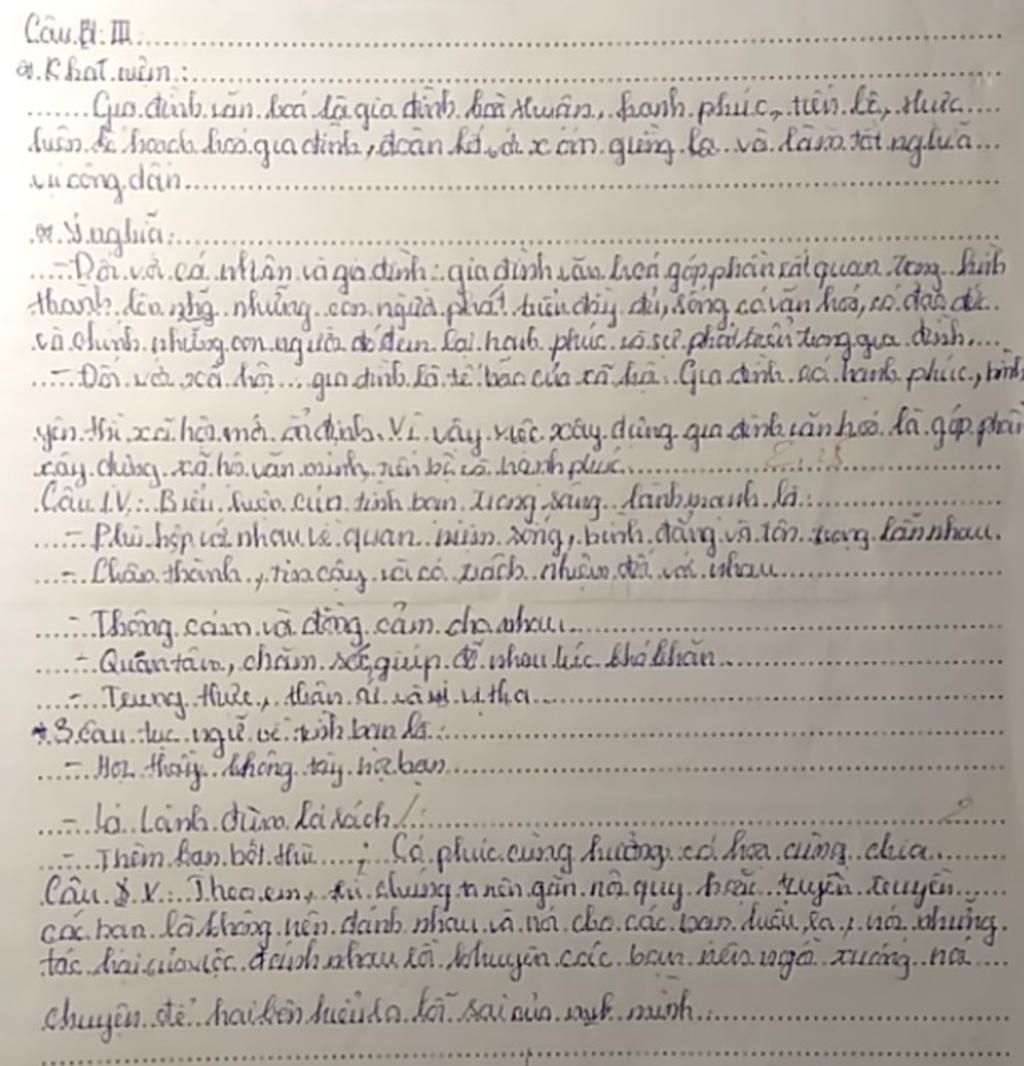 Câu III
* Khái niệm:
Gia đình văn hoá là gia đình hoà thuận, hạnh phúc, tiến bộ, thực
hiện kế hoạch hoá gia đình, đoàn kết với xóm giềng và làm tốt nghĩa
vụ công dân
* Ý nghĩa:
- Đối với cá nhân và gia đình: gia đình văn hoá góp phần rất quan trọng hình
thành lên những con người phát triển đầy đủ, sống có văn hoá, có đạo đức
và chính những con người đó đem lại hạnh phúc và sự phát triển trong gia đình.
- Đối với xã hội: gia đình là tế bào của xã hội. Gia đình có hạnh phúc, bình
yên thì xã hội mới ổn định. Vì vậy việc xây dựng gia đình văn hoá là góp phần
xây dựng xã hội văn minh, tiến bộ và hạnh phúc
Câu IV: Biểu hiện của tình bạn trong sáng lành mạnh là:
- Phù hợp với nhau về quan niệm sống, bình đẳng và tôn trọng lẫn nhau.
- Chân thành, tin cậy và có trách nhiệm đối với nhau
- Thông cảm và đồng cảm cho nhau
- Quan tâm, chăm sóc, giúp đỡ nhau lúc khó khăn
- Trung thực, thân ái và vị tha
* 3 câu tục ngữ về tình bạn là:
- Học thầy không tày học bạn
- Lá lành đùm lá rách
- Thêm bạn bớt thù ; Có phúc cùng hưởng có hoạ cùng chia
Câu V: Theo em, thì chúng ta nên gắn nội quy hoặc tuyên truyền
các bạn là không nên đánh nhau và nói cho các bạn hiểu ra, nói những
tác hại của việc đánh nhau và khuyên các bạn nên ngồi xuống nói
chuyện để hai bên hiểu ra lỗi sai của mình